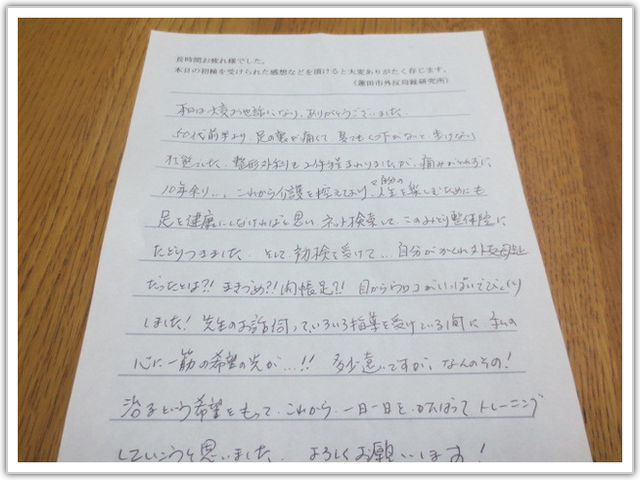 長時間お疲れ様でした。
本日の初検を受けられた感想などを頂けると大変ありがたく存じます。
(蓮田市外反母趾研究所)
本日は大変お世話になり、ありがとうございました。
50代前半より 足の裏が痛くて
整形外科も2件程まわりましたが、痛みがとれずに
10年余り…。これから介護を控えており、と自分の人生を楽しむためにも
足を健康にしなければと思い ネット検索して、このみどり整体院に
たどりつきました。そして 初検を受けて… 自分がかくれ外反母趾
だったとは?! まきづめ?! 内張足?! 目からウロコがいっぱいでびっくり
しました! 先生のお話伺っていろいろ指導を受けている間に 私の
心に一筋の希望の光が…!! 多少遠いですが、なんのその!
治るという希望をもって、これから、一日一日を、がんばって トレーニング
していこうと思いました。 よろしくお願いします!